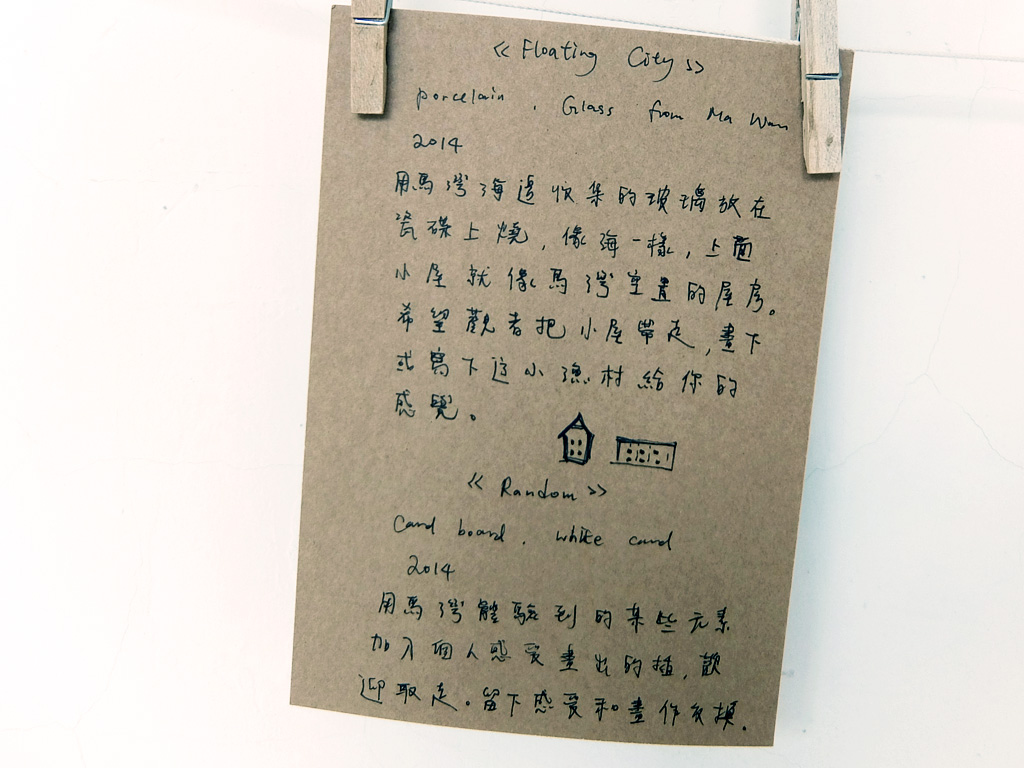 《Floating City》
porcelain, Glass from Ma Wan
2014
用馬灣海邊收集的玻璃放在
瓷碟上燒，像海一樣，上面
小屋就像馬灣重置的屋房。
希望觀者把小屋帶走，畫下
或寫下這小漁村給你的
感覺。
《Random》
Card board, white card
2014
用馬灣體驗到的某些元素
加入個人感受畫出的插，歡
迎取走。留下感受和畫作交換.